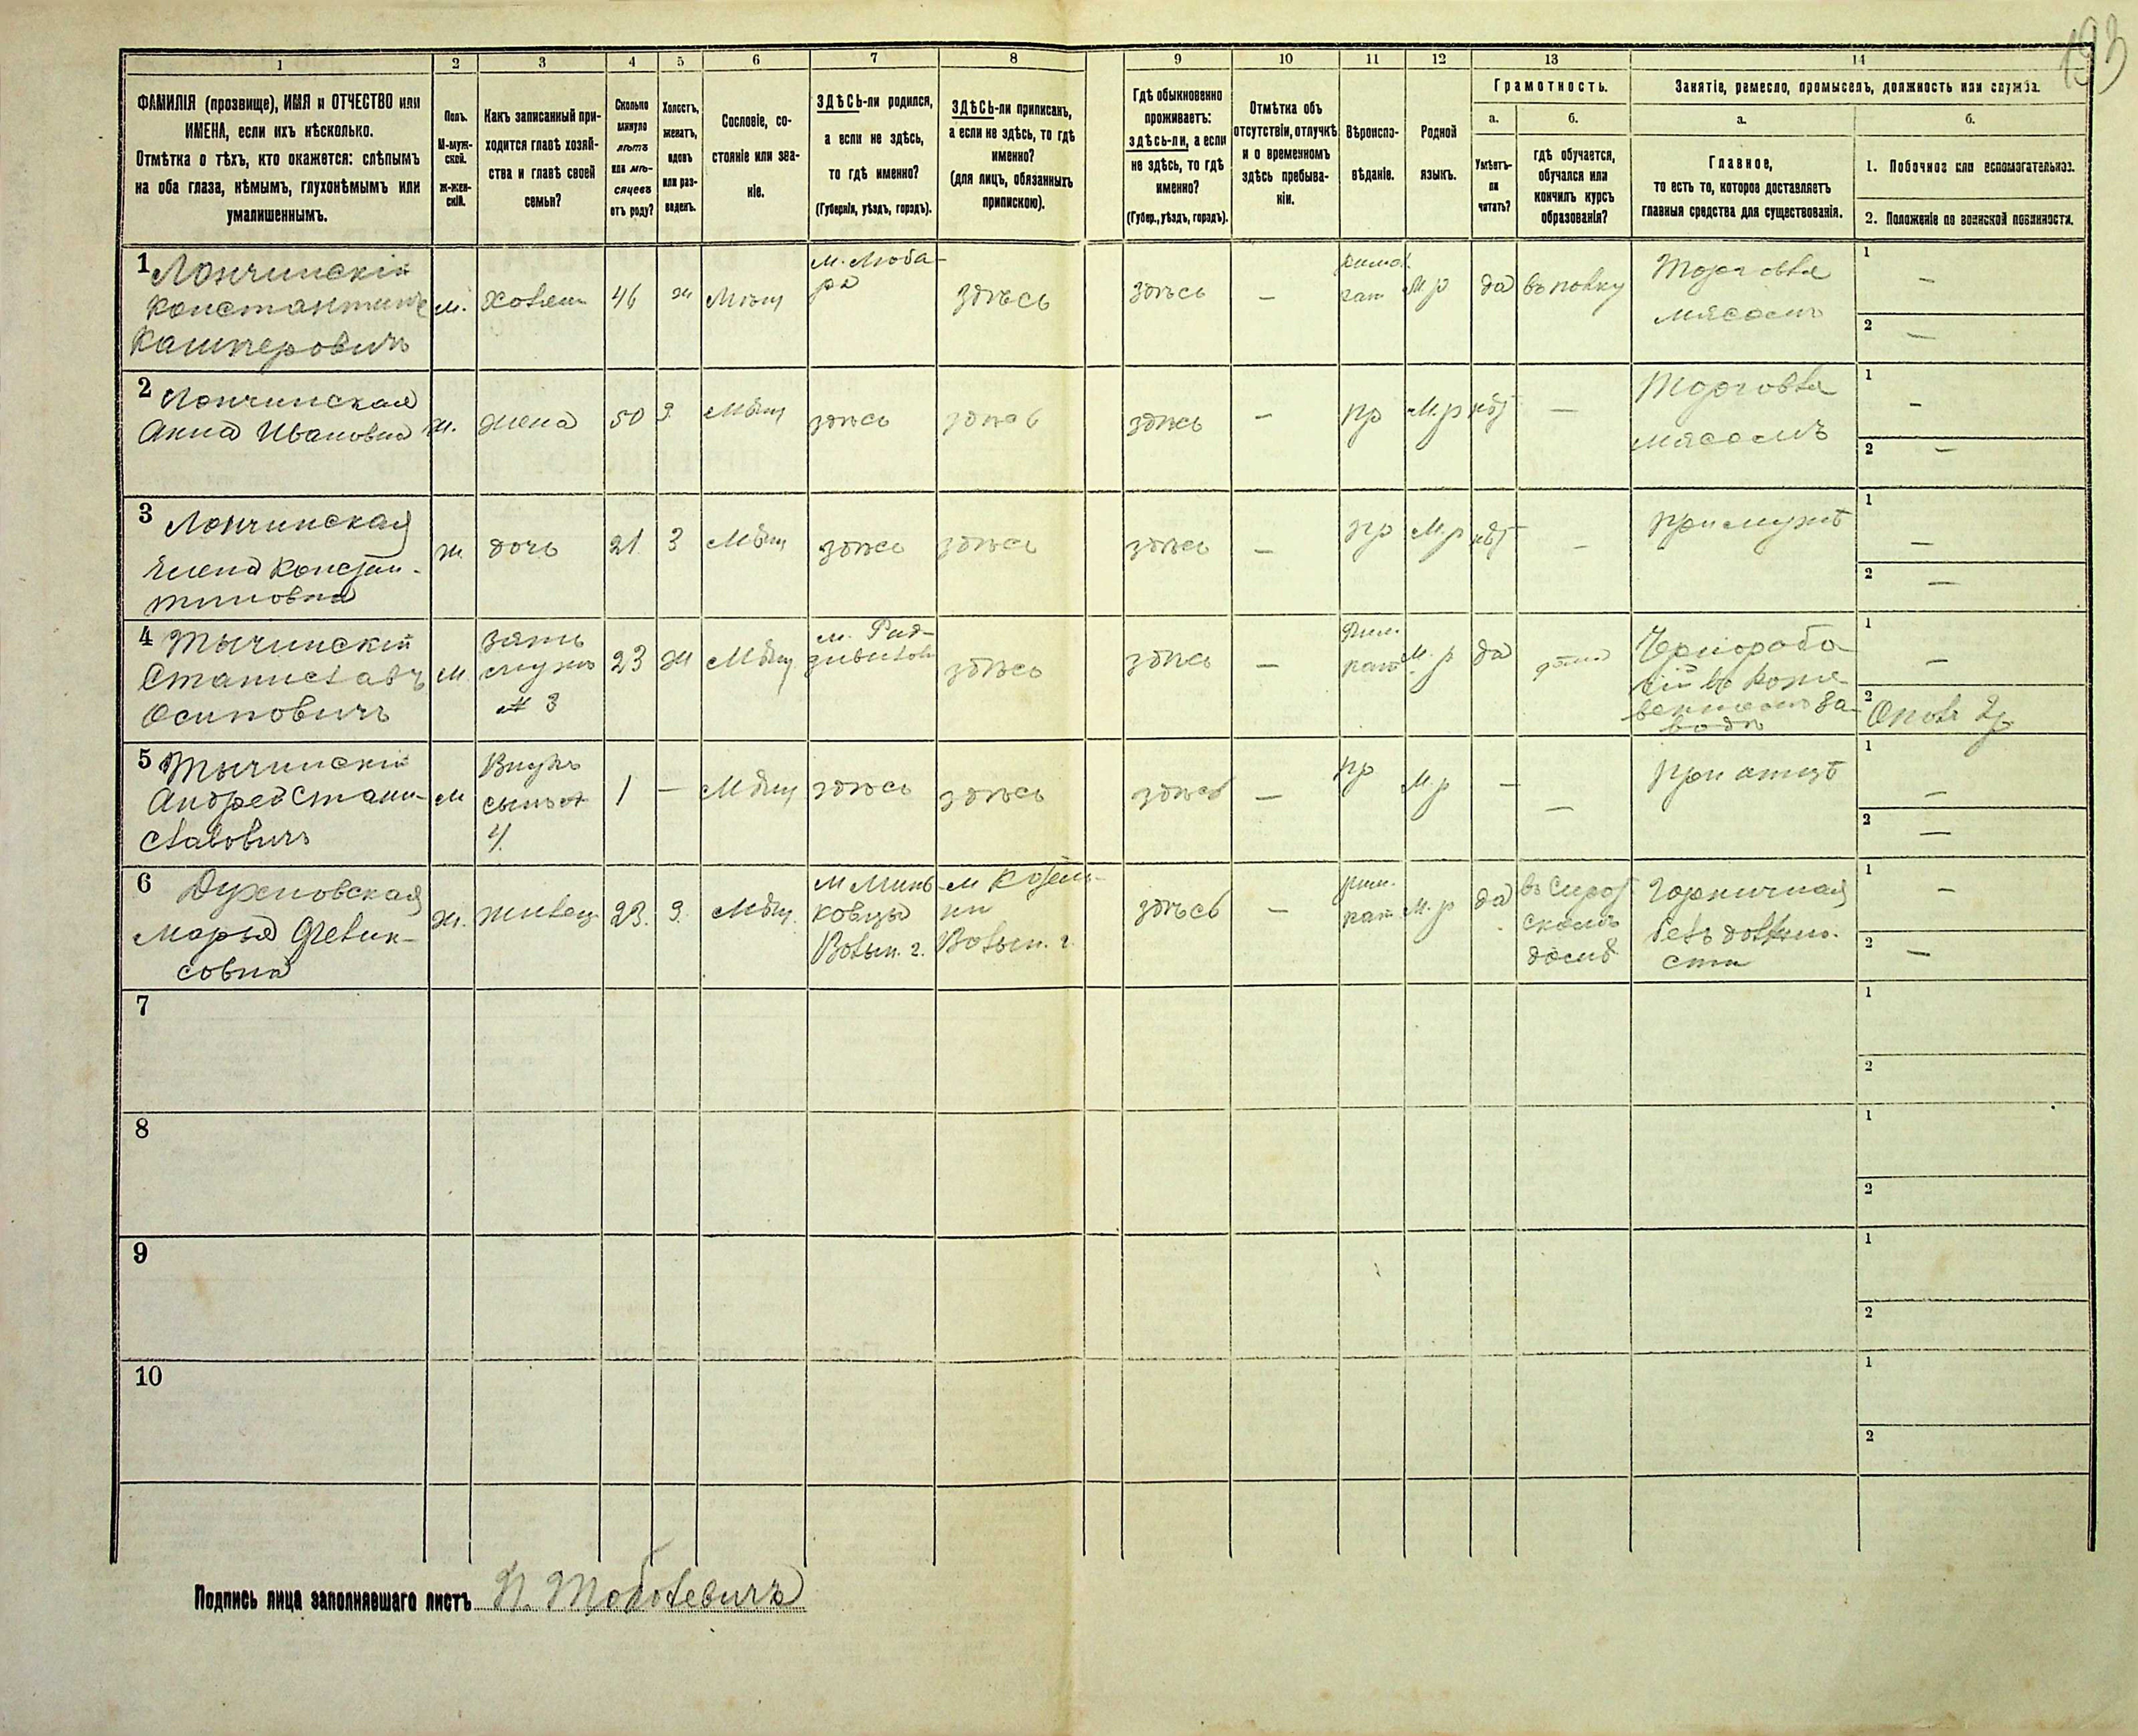 193
1 2 3 4 5 6 7 8 9 10 11 12 13 14
ФАМИЛІЯ (прозвище), ИМЯ и ОТЧЕСТВО или
ИМЕНА, если ихъ нѣсколько.
Отмѣтка о тѣхъ, кто окажется: слѣпымъ
на оба глаза, нѣмымъ, глухонѣмымъ или
умалишеннымъ.
Полъ.
М-муж-
ской.
ж-жен-
скій.
Какъ записанный при-
ходится главѣ хозяй-
ства и главѣ своей
семьи?
Сколько
минуло
лѣтъ
или мѣ-
сяцевъ
отъ роду?
Холостъ,
женатъ,
вдовъ
или раз-
веденъ.
Сословіе, со-
стояніе или зва-
ніе.
ЗДѢСЬ-ли родился,
а если не здѣсь,
то гдѣ именно?
(Губернія, уѣздъ, городъ).
ЗДѢСЬ-ли приписанъ,
а если не здѣсь, то гдѣ
именно?
(для лицъ, обязанныхъ
припискою).
Гдѣ обыкновенно
проживаетъ:
здѣсь-ли, а если
не здѣсь, то гдѣ
именно?
(Губер., уѣздъ, городъ).
Отмѣтка объ
отсутствіи, отлучкѣ
и о временномъ
здѣсь пребыва-
ніи.
Вѣроиспо-
вѣданіе.
Родной
языкъ.
Грамотность.
а.
Умѣетъ-
ли
читать?
б.
гдѣ обучается,
обучался или
кончилъ курсъ
образованія?
Занятіе, ремесло, промыселъ, должность или служба.
а.
Главное,
то есть то, которое доставляетъ
главныя средства для существованія.
б.
1. Побочное или вспомогательное.
2. Положеніе по воинской повинности.
1 Лончинскій
Константинъ
Кашперовичъ
м.
хозяин
46
ж
Мѣщ
м. Люба-
ра
здѣсь
здѣсь
—
римс.
кат
М. р
да
въ полку
Торговля
мясомъ
1 —
2 —
2 Лончинская
Анна Ивановна
ж.
жена
50
З.
Мѣщ
здѣсь
здѣсь
здѣсь
—
пр
М. р
нѣт
—
Торговля
мясомъ
1 —
2 —
3 Лончинская
Елена Констан-
тиновна
ж
дочь
21
З
Мѣщ
здѣсь
здѣсь
здѣсь
—
пр
М. р
нѣт
—
при мужѣ
1 —
2 —
4 Тычинскій
Станиславъ
Осиповичъ
м
зять
мужъ
№ 3
23
ж
Мѣщ
м. Рад-
зивилов
здѣсь
здѣсь
—
Рим.
кат
М. р
да
дома
Чернорабо
чій въ коже
венномъ за-
водѣ
1 —
2 Опол. 2 р
5 Тычинскій
Андрей Стани-
славовичъ
м
Внукъ
сынъ №
4.
1
—
Мѣщ
здѣсь
здѣсь
здѣсь
—
пр
М. р
—
—
при отцѣ
1 —
2 —
6 Духновская
Марья Феликсовна
ж.
жилец
23.
З.
Мѣщ.
м Минь-
ковцы
Волын. г.
м Козели-
ни
Волын. г.
здѣсь
—
рим.
кат.
М. р
да
въ Сирот
скомъ
домѣ
Горничная
безъ должно-
сти
1 —
2 —
7
1
2
8
1
2
9
1
2
10
1
2
Подпись лица заполнявшаго листъ П. Тоболевичъ